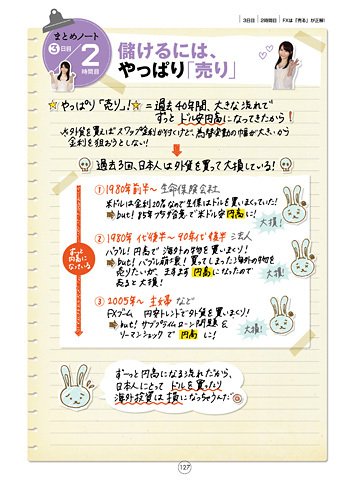 3日目 2時間目 FXは「売る」が正解!
まとめノート
3日目
2時間目
儲けるには、
やっぱり「売り」
やっぱり「売り」! = 過去40年間、大きな流れで
ずっとドル安円高になってきたから!
※外貨を買えばスワップ金利が付くけど、為替変動の幅が大きいから
金利を狙おうとしない!
過去3回、日本人は外貨を買って大損している!
ずっと円高になっている
①1980年前半〜 生命保険会社
米ドルは金利20%なので生保はドルを買いまくっていた!
but! 85年プラザ合意で米ドル安円高に!
大損!
②1980年代後半〜90年代後半 法人
バブル!円高で海外の物を買いまくり!
but! バブル崩壊!買ってしまった海外の物を
売りたいが、ますます円高になったので
売ると大損!
大損!
③2005年〜 主婦など
FXブーム 円安トレンドで外貨を買いまくり!
but! サブプライムローン問題&
リーマンショックで円高に!
大損!
ずーっと円高になる流れだから、
日本人にとってドルを買ったり
海外投資は損になっちゃうんだ
127